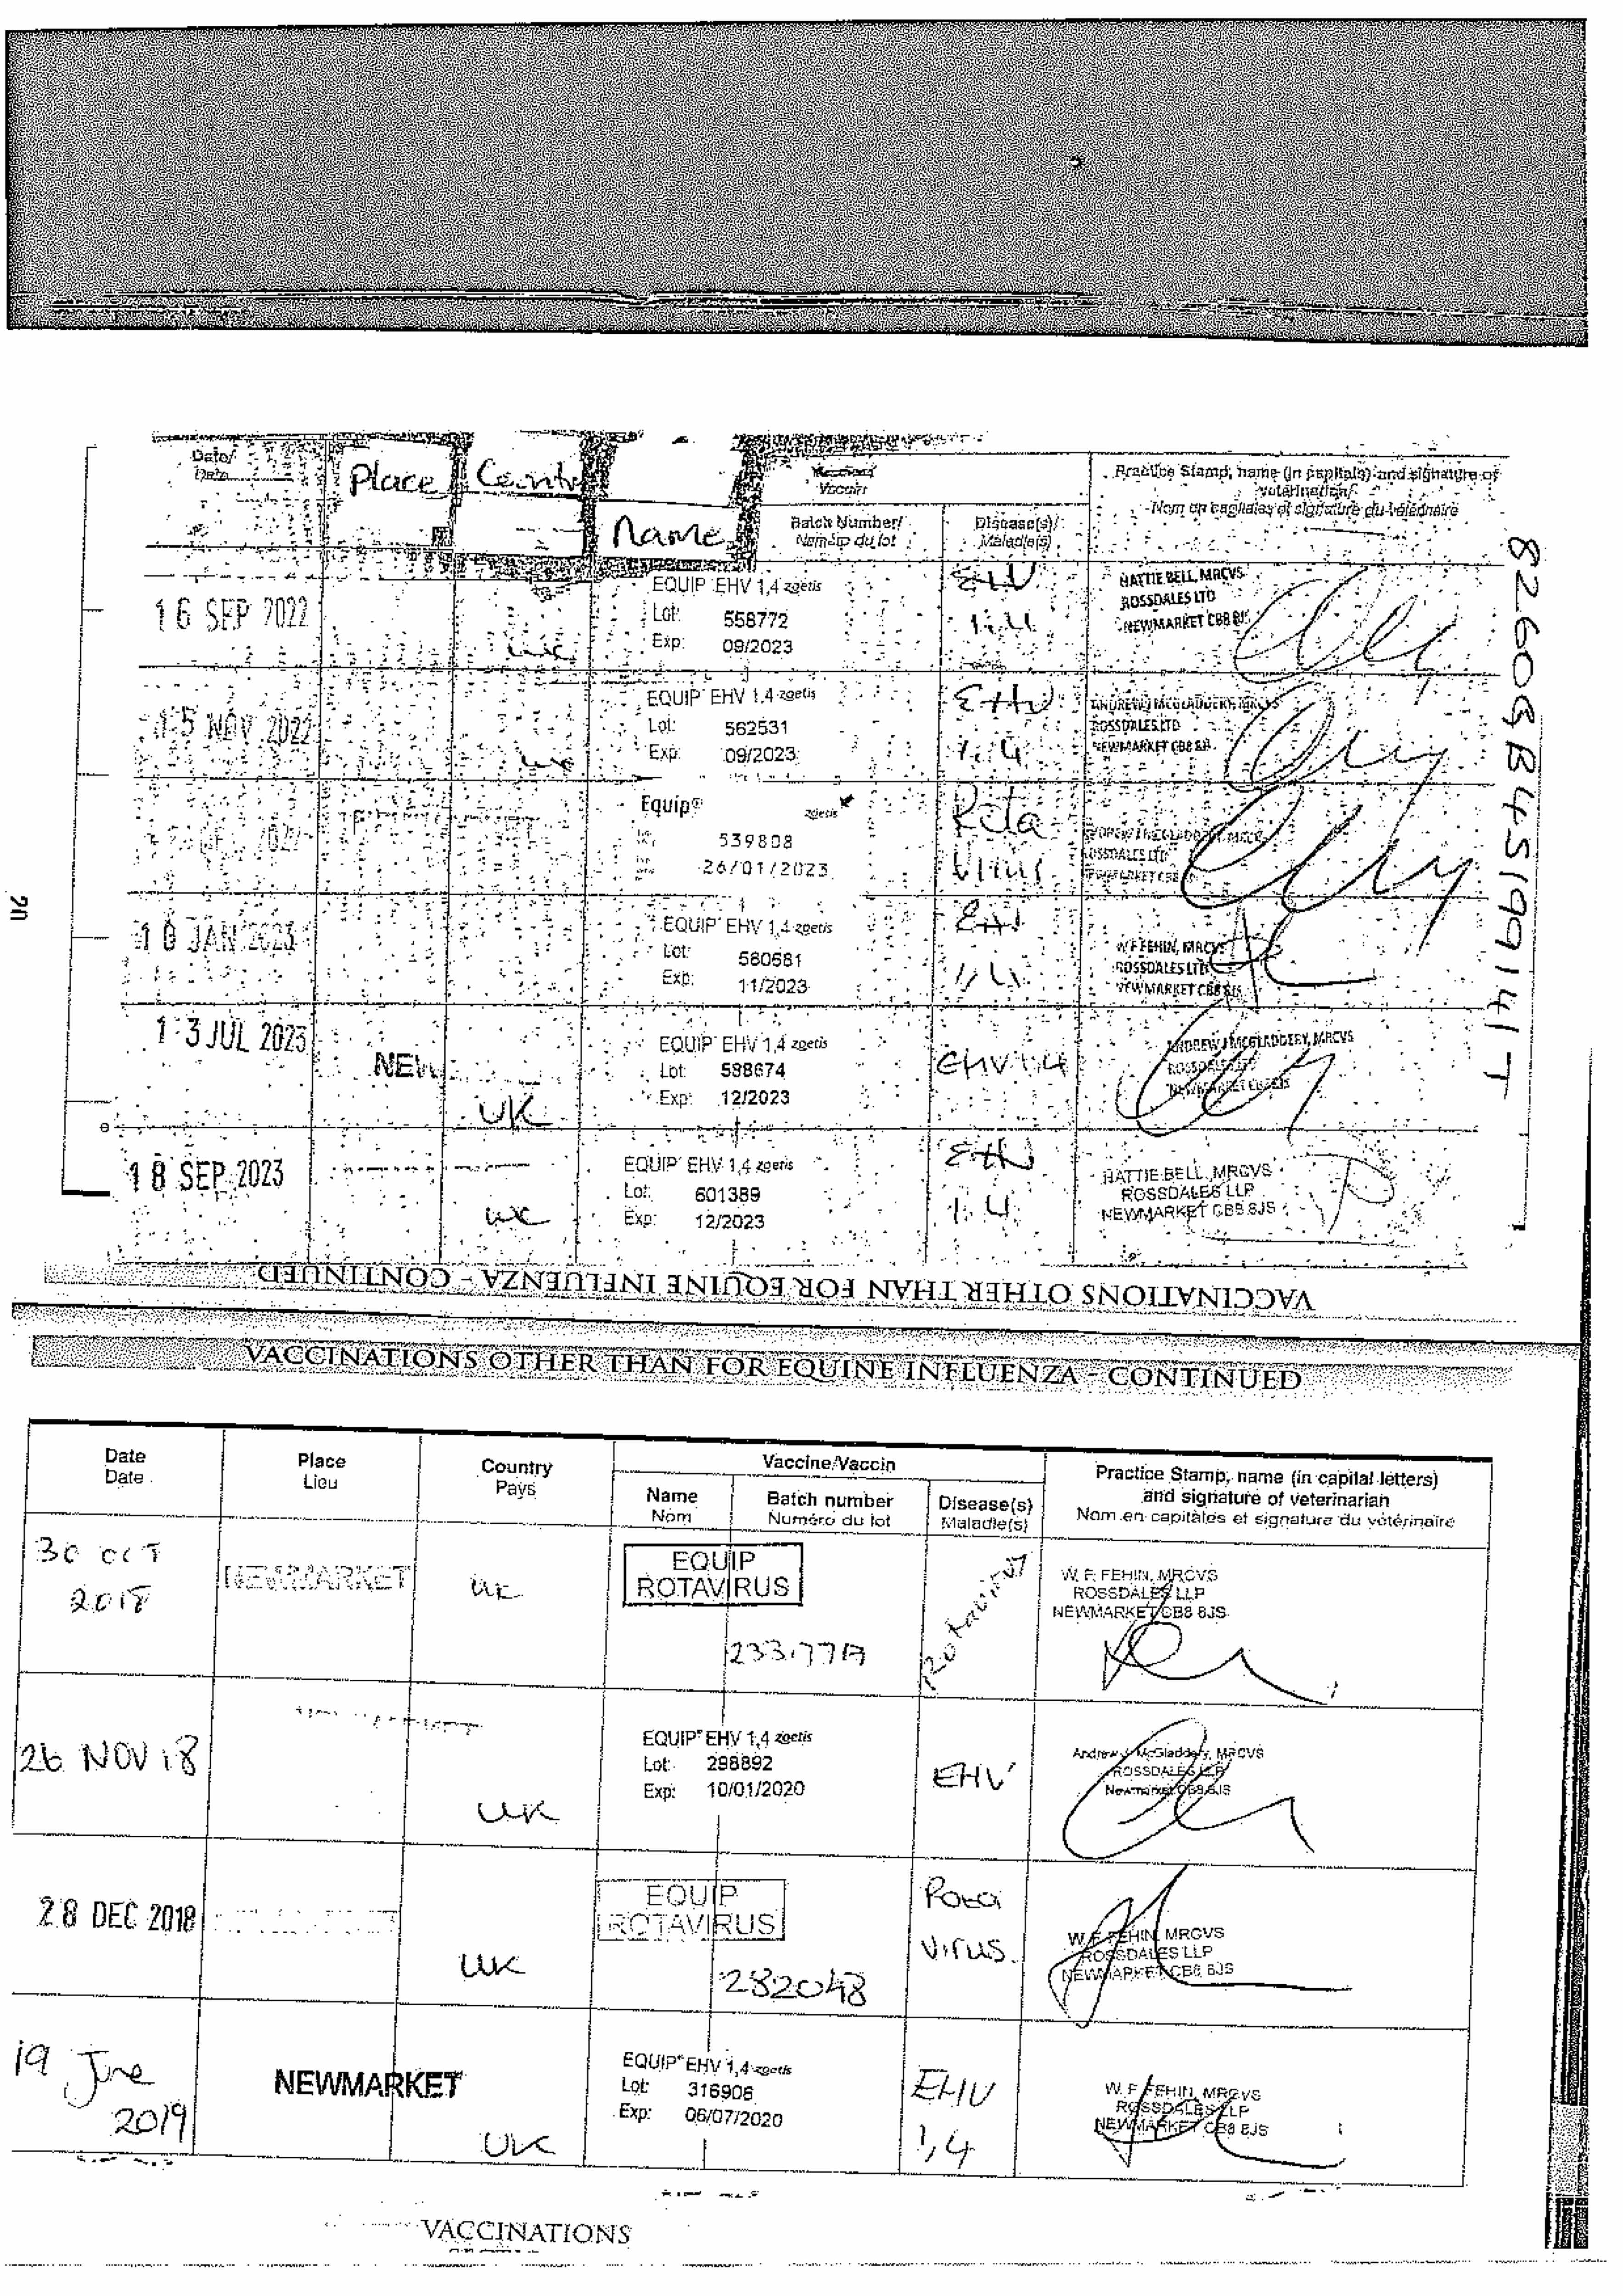 Date/
Date
Place
Country
Name
Vaccin
Batch Number/
Numéro du lot
Disease(s)/
Maladie(s)
Practice Stamp, name (in capitals) and signature of
veterinarian/
Nom en capitales et signature du vétérinaire
16 SEP 2022
UK
EQUIP EHV 1,4 zoetis
Lot: 558772
Exp: 09/2023
EHV
1,4
HATTIE BELL, MRCVS
ROSSDALES LTD
NEWMARKET CB8 8JS
15 NOV 2022
UK
EQUIP EHV 1,4 zoetis
Lot: 562531
Exp: 09/2023
EHV
1,4
ANDREW J MCGLADDERY, MRCVS
ROSSDALES LTD
NEWMARKET CB8 8JS
2022
Equip® zoetis
539808
26/01/2023
Rota
Virus
ANDREW J MCGLADDERY, MRCVS
ROSSDALES LTD
NEWMARKET CB8
JAN 2023
EQUIP EHV 1,4 zoetis
Lot: 560681
Exp: 11/2023
EHV
1,4
W F FEHIN, MRCVS
ROSSDALES LTD
NEWMARKET CB8 8JS
13 JUL 2023
NEW
UK
EQUIP EHV 1,4 zoetis
Lot: 598674
Exp: 12/2023
EHV 1,4
ANDREW J MCGLADDERY, MRCVS
ROSSDALES
NEWMARKET CB8 8JS
18 SEP 2023
UK
EQUIP EHV 1,4 zoetis
Lot: 601389
Exp: 12/2023
EHV
1,4
HATTIE BELL, MRCVS
ROSSDALES LLP
NEWMARKET CB8 8JS
20
82608B4S19914IT
VACCINATIONS OTHER THAN FOR EQUINE INFLUENZA - CONTINUED
VACCINATIONS OTHER THAN FOR EQUINE INFLUENZA - CONTINUED
Date
Date
Place
Lieu
Country
Pays
Vaccine/Vaccin
Name
Nom
Batch number
Numéro du lot
Disease(s)
Maladie(s)
Practice Stamp, name (in capital letters)
and signature of veterinarian
Nom en capitales et signature du vétérinaire
30 OCT
2018
NEWMARKET
UK
EQUIP
ROTAVIRUS
Rotavirus
W. F. FEHIN, MRCVS
ROSSDALES LLP
NEWMARKET CB8 8JS
26 NOV 18
UK
EQUIP® EHV 1,4 zoetis
Lot: 298892
Exp: 10/01/2020
EHV
Andrew J. McGladdery, MRCVS
ROSSDALES LLP
Newmarket CB8 8JS
28 DEC 2018
UK
EQUIP
ROTAVIRUS
282048
Rota
virus
W. F. FEHIN, MRCVS
ROSSDALES LLP
NEWMARKET CB8 8JS
19 June
2019
NEWMARKET
UK
EQUIP® EHV 1,4 zoetis
Lot: 316906
Exp: 06/07/2020
EHV
1,4
W. F. FEHIN, MRCVS
ROSSDALES LLP
NEWMARKET CB8 8JS
VACCINATIONS